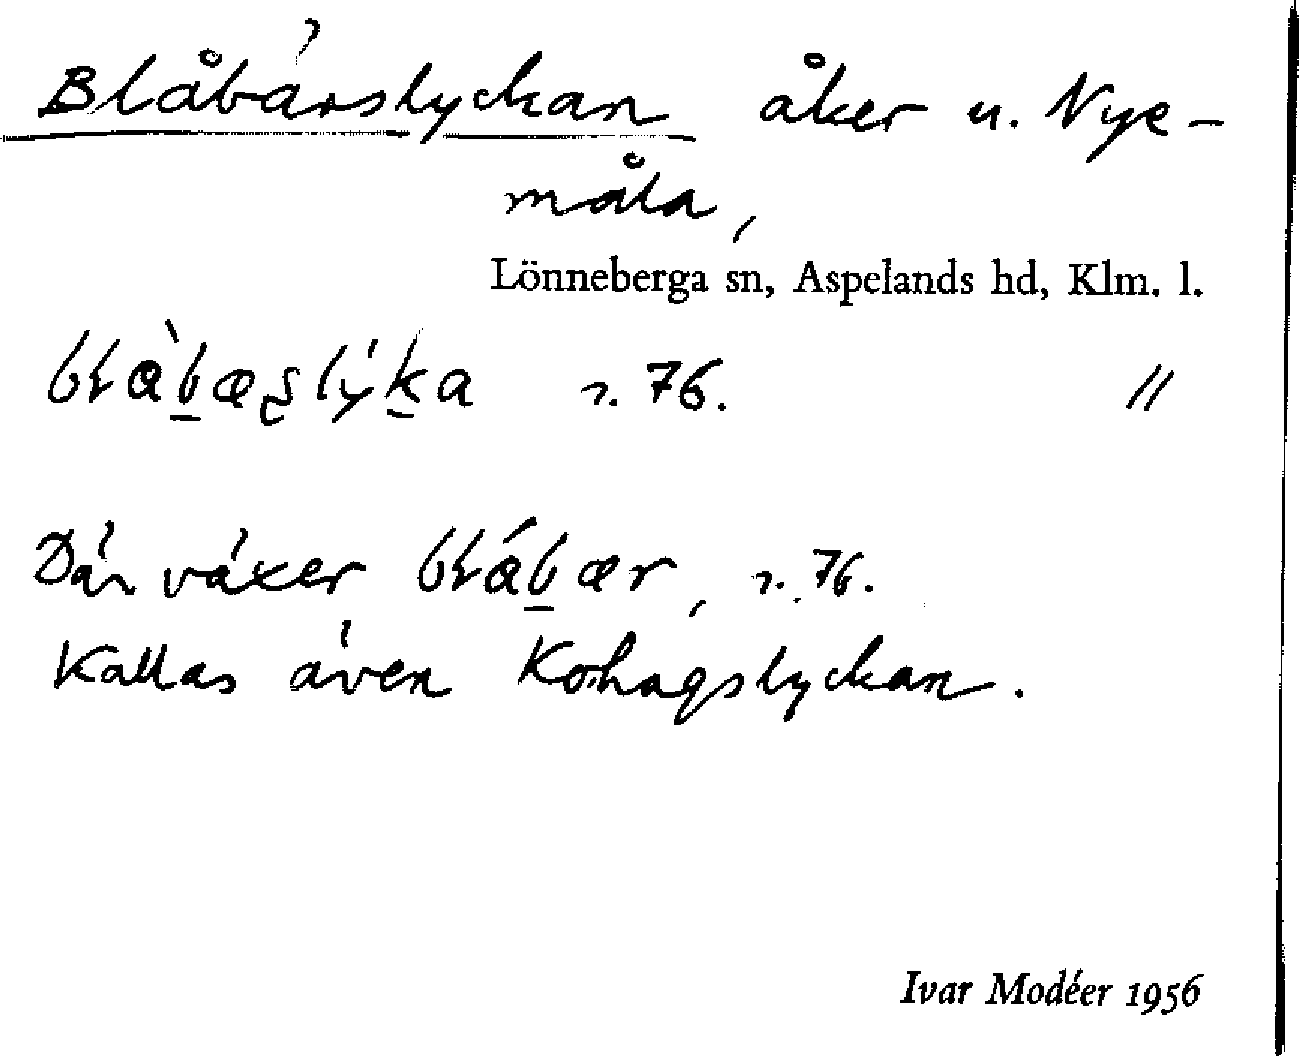 Blåbärslyckan åker u. Nye-
måla,
Lönneberga sn, Aspelands hd, Klm. l.
r. 76. //
Där växer blábær, r. 76.
Kallas även Kohagslyckan.
Ivar Modéer 1956